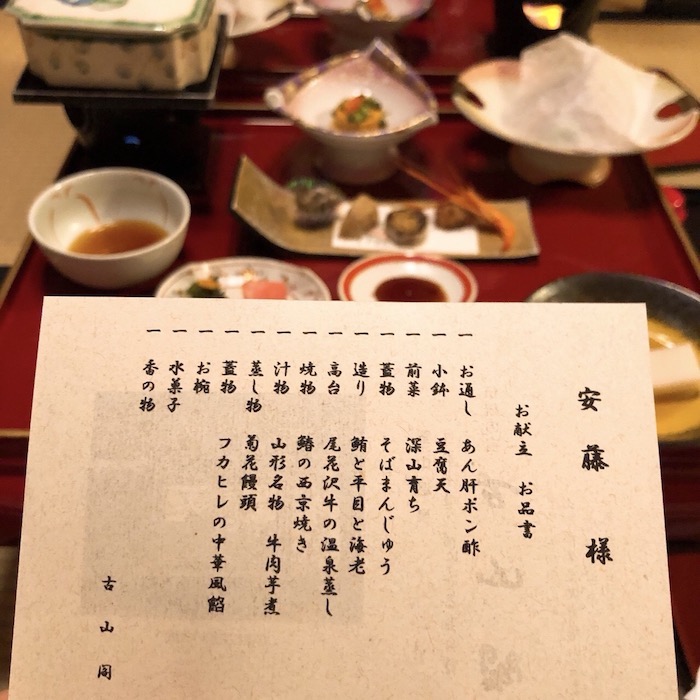 安藤 様
お献立 お品書
一 お通し あん肝ポン酢
一 小鉢 豆腐天
一 前菜 深山育ち
一 蓋物 そばまんじゅう
一 造り 鮪と平目と海老
一 高台 尾花沢牛の温泉蒸し
一 焼物 鰆の西京焼き
一 汁物 山形名物 牛肉芋煮
一 蒸し物 菊花饅頭
一 蓋物 フカヒレの中華風餡
一 お椀
一 水菓子
一 香の物
古山閣